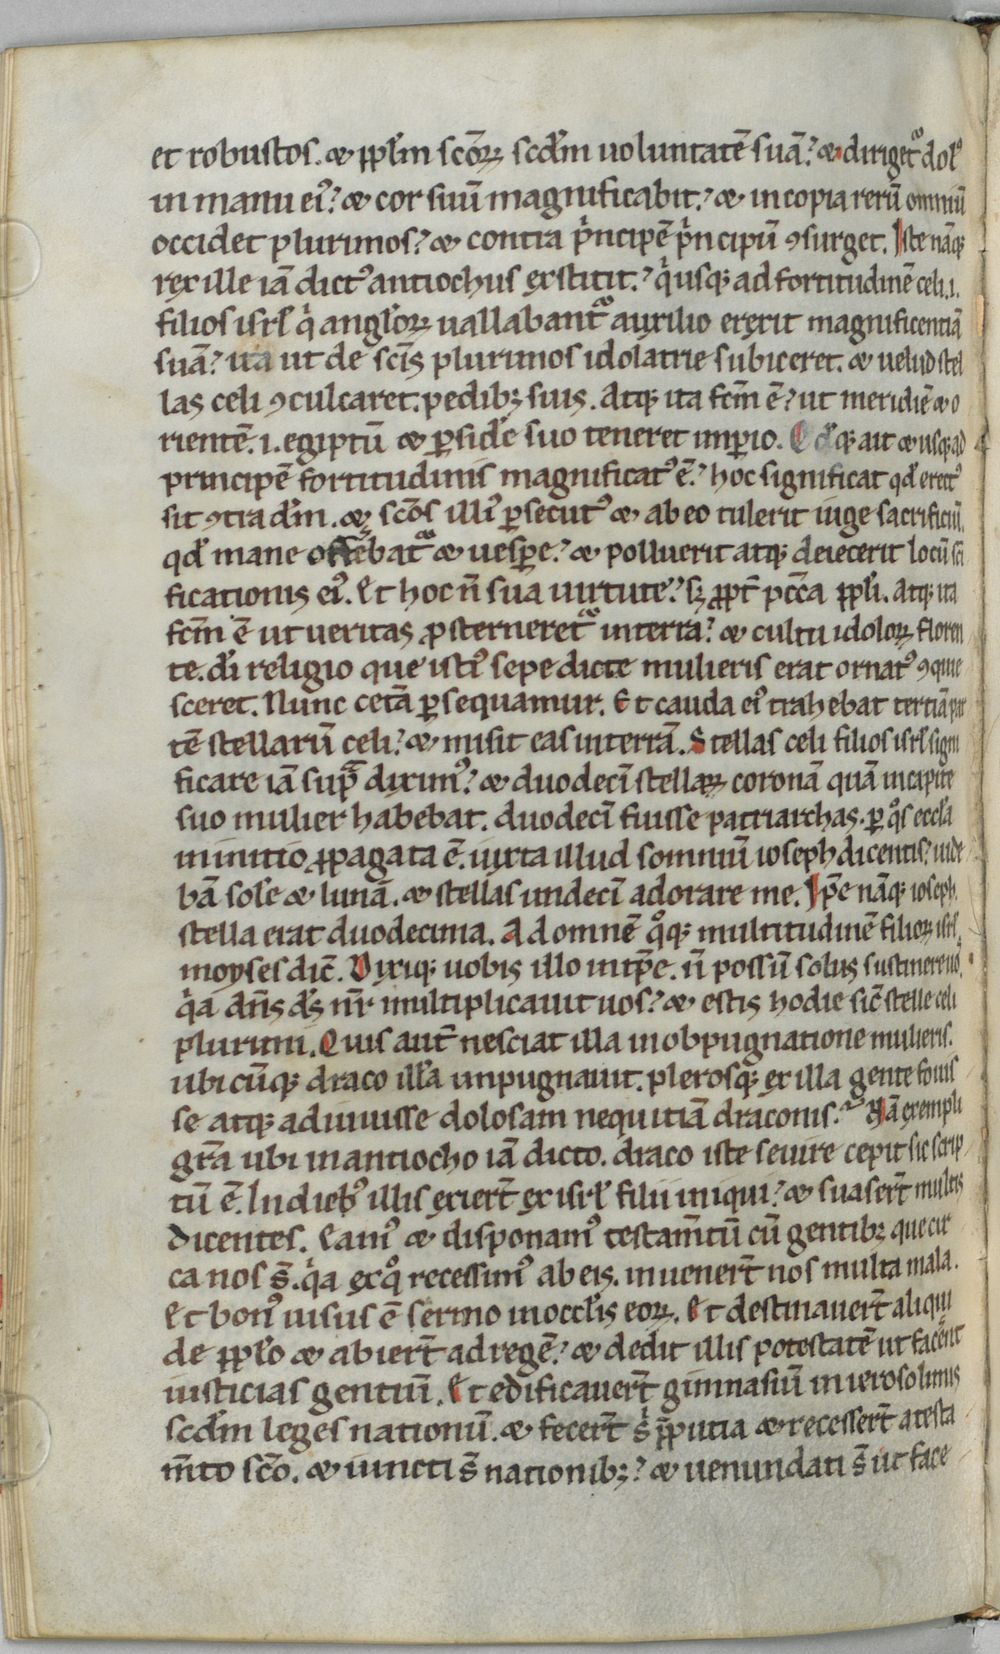 et robustos. & ppl̄m scōꝝ scd̄m uoluntatē suā? & diriget᷑ dolꝰ
in manu eiꝰ? & cor suū magnificabit? & in copia rerū omniū
occidet plurimos? & contra pͥncipē pͥncipū ꝯsurget. Iste nāqꝫ
rex ille iā dictꝰ antiochus exstitit? qͥ usqꝫ ad fortitudinē celi .i.
filios isrl̄ qͥ angl̄oꝝ uallabant᷑ auxilio erexit magnificentiā
suā? ita ut de scīs plurimos idolatrie subiceret. & uelud stel
las celi ꝯculcaret. pedibꝫ suis. Atqꝫ ita fcm̄ ē? ut meridiē & o
rientē .i. egiptū & ꝑsidē suo teneret imperio. Qd̄qꝫ ait & usqꝫ ad
principē fortitudinis magnificatꝰ ē? hoc significat qd̄ erectꝰ
sit ꝯtra dm̄. & scōs illiꝰ ꝑsecutꝰ & ab eo tulerit iuge sacrificiū.
qd̄ mane offērebat᷑ & uesꝑe? & polluerit atqꝫ deiecerit locū sc̄i
ficationis eiꝰ. Et hoc n̄ sua uirtute? sꝫ ꝓpt̄ pcc̄a ppl̄i. Atqꝫ ita
fcm̄ ē ut ueritas ꝓsterneret᷑ in terra? & cultu idoloꝝ floren
te. dī religio que istiꝰ sepe dicte mulieris erat ornatꝰ ꝯquie
sceret. Nunc cetā ꝑsequamur. Et cauda eiꝰ trahebat tertiā par
tē stellarū celi? & misit eas in terrā. Stellas celi filios isrl̄ signi
ficare iā supᷓ diximꝰ? & duodecī stellaꝝ coronā quā in capite
suo mulier habebat. duodecī fuisse patriarchas. ꝑ qͦs eccl̄a
in initio ꝓpagata ē. iuxta illud somniū ioseph dicentis? uide
bā sole & lunā. & stellas undecī adorare me. Ipse nāqꝫ ioseph.
stella erat duodecima. Ad omnē qͦqꝫ multitudinē filioꝝ isrl̄.
moyses dic̄. Dixiqꝫ uobis illo in tp̄e. n̄ possū solus sustinere uos.
qͥa dn̄s ds̄ nr̄ multiplicauit uos? & estis hodie sic̄ stelle celi
plurimi. Quis aut̄ nesciat illa in obpugnatione mulieris.
ubicūqꝫ draco ill̄a impugnauit. plerosqꝫ ex illa gente fouis
se atqꝫ adiuuisse dolosam nequitiā draconis? Nā exempli
gr̄a ubi in antiocho iā dicto. draco iste seuire cepit sic scrip
tū ē. In diebꝰ illis exiert̄ ex isrl̄ filii iniqui? & suasert̄ multis
dicentes. Eamꝰ & disponamꝰ testam̄tū cū gentibꝫ que cir
ca nos s̄. qͥa ex qͦ recessimꝰ ab eis. inuenert̄ nos multa mala.
Et bonꝰ uisus ē sermo in occl̄is eoꝝ. Et destinauert̄ aliqui
de ppl̄o & abiert̄ ad regē? & dedit illis potestatē ut facerent
iusticias gentiū. Et edificauert̄ gimnasiū in ierosolimis
scd̄m leges nationū. & fecert̄ sͥ p̄putia & recessert̄ a testa
m̄to scō. & iuncti s̄ nationibꝫ? & uenundati s̄ ut face